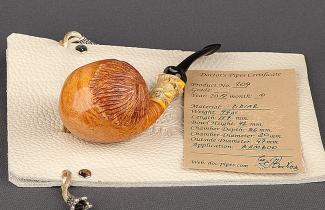 Doctor's Pipes Certificate
Product No. 209
Grade:
Year: 2012 month:
Material: BRIAR
Weight:
Length:
Bowl Height:
Chamber Depth: 36 mm.
Chamber Diameter: 20 mm.
Outside Diameter: 47 mm.
Application: BAMBOO
Web: doc-pipes.com